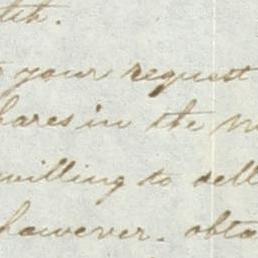 your request
hares in the
willing to sell
however. obta